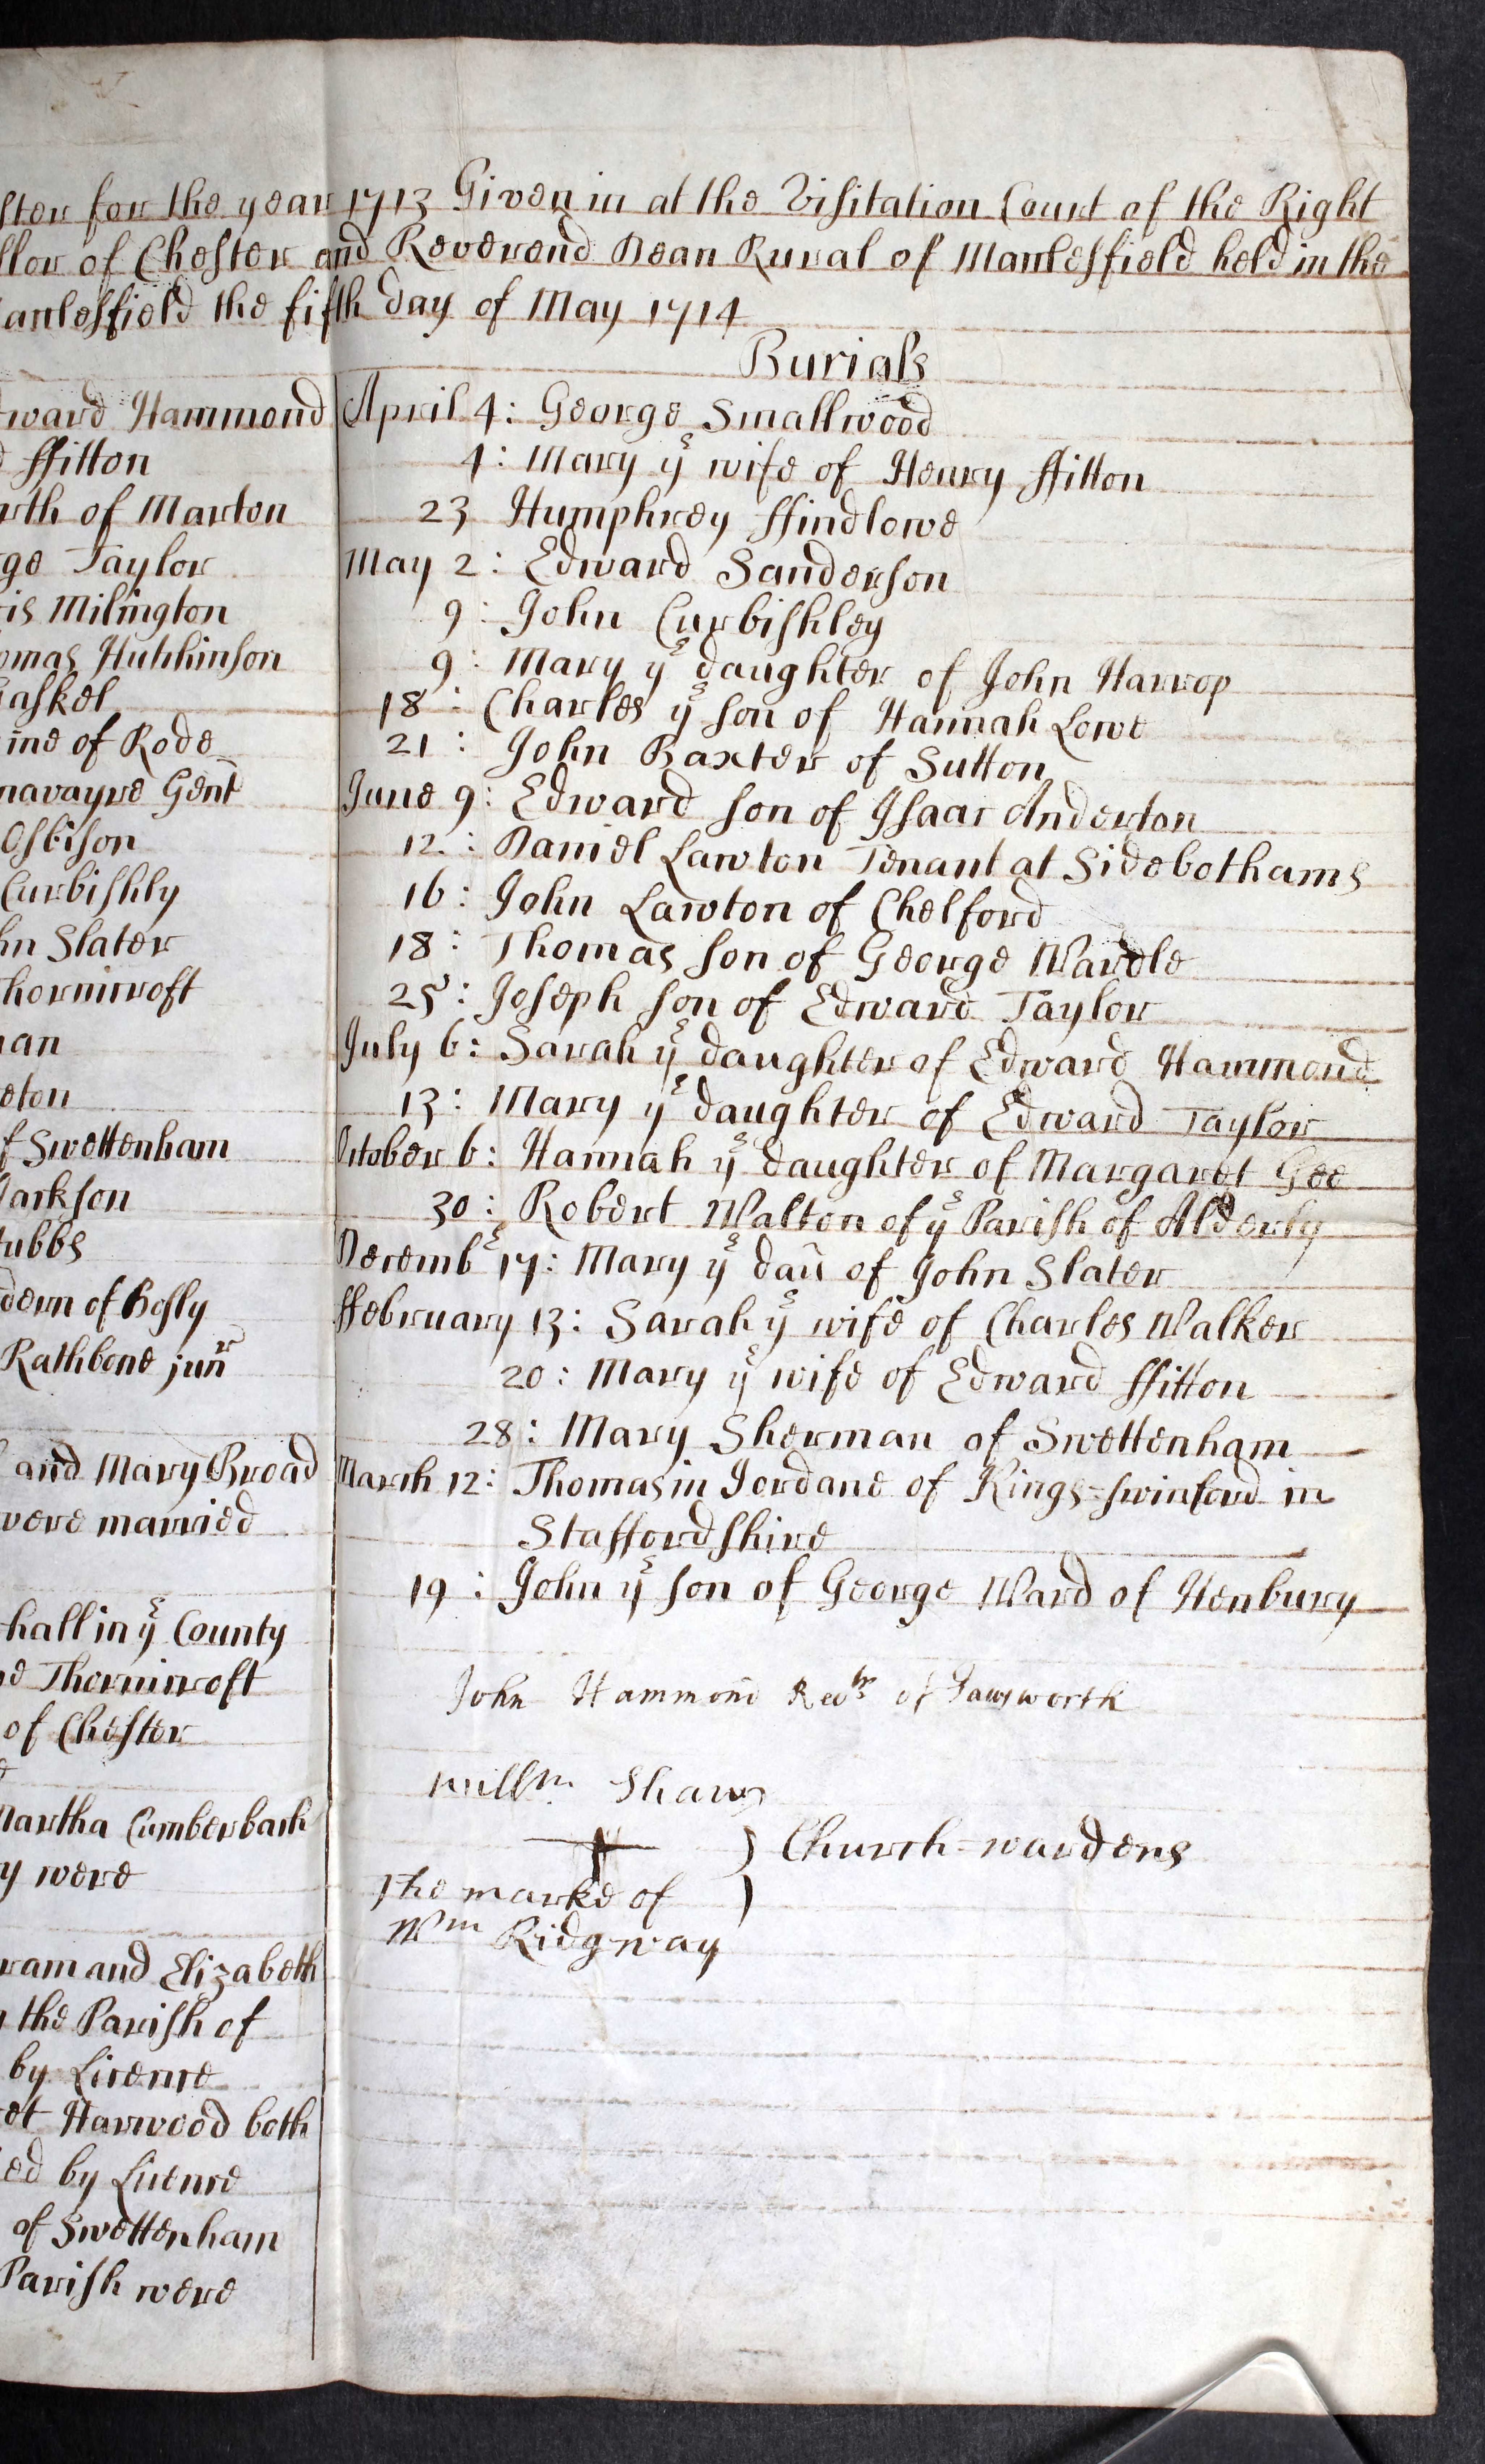 ster for the year 1713 Given in at the Visitation Court of the Right
llor of Chester and Reverend Dean Rural of Macclesfield held in the
acclesfield the fifth day of May 1714
ward Hammond
ffitton
rth of Marton
ge Taylor
is Milington
omas Hutchinson
askel
ine of Rode
navayre Gent
Osbison
Curbishly
hn Slater
hornicroft
an
eton
f Swettenham
Jackson
tubbs
dern of Bosly
Rathbone junr
and Mary Broad
were married
hall in ye County
e Thornicroft
of Chester
Martha Cumberbach
y were
ram and Elizabeth
the Parish of
by Licence
et Harwood both
ed by Licence
of Swettenham
Parish were
Burials
April 4: George Smallwood
4: Mary ye wife of Henry ffitton
23 Humphrey ffindlowe
May 2: Edward Sanderson
9: John Curbishley
9: Mary ye daughter of John Harrop
18: Charles ye son of Hannah Lowe
21: John Baxter of Sutton
June 9: Edward son of Isaac Anderton
12: Daniel Lawton Tenant at Sidebothams
16: John Lawton of Chelford
18: Thomas son of George Wardle
25: Joseph son of Edward Taylor
July 6: Sarah ye daughter of Edward Hammond
13: Mary ye daughter of Edward Taylor
October 6: Hannah ye daughter of Margaret Gee
30: Robert Walton of ye Parish of Alderly
Decembr 17: Mary ye dau of John Slater
ffebruary 13: Sarah ye wife of Charles Walker
20: Mary ye wife of Edward ffitton
28: Mary Sherman of Swettenham
March 12: Thomasin Jordane of Kings=swinford in
Staffordshire
19: John ye son of George Ward of Henbury
John Hammond Rectr of Gawsworth
Willm Shaw
} Church=wardens
The marke of
Wm Ridgway